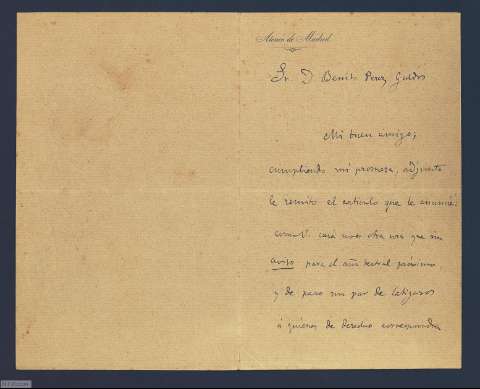 Ateneo de Madrid
Sr. D. Benito Perez Galdós
Mi buen amigo;
cumpliendo mi promesa, adjunto
le remito el articulo que le anuncié.
otra cosa que un
aviso para el año teatral próximo,
y de paso un par de latigazos
á quienes de derecho corresponda